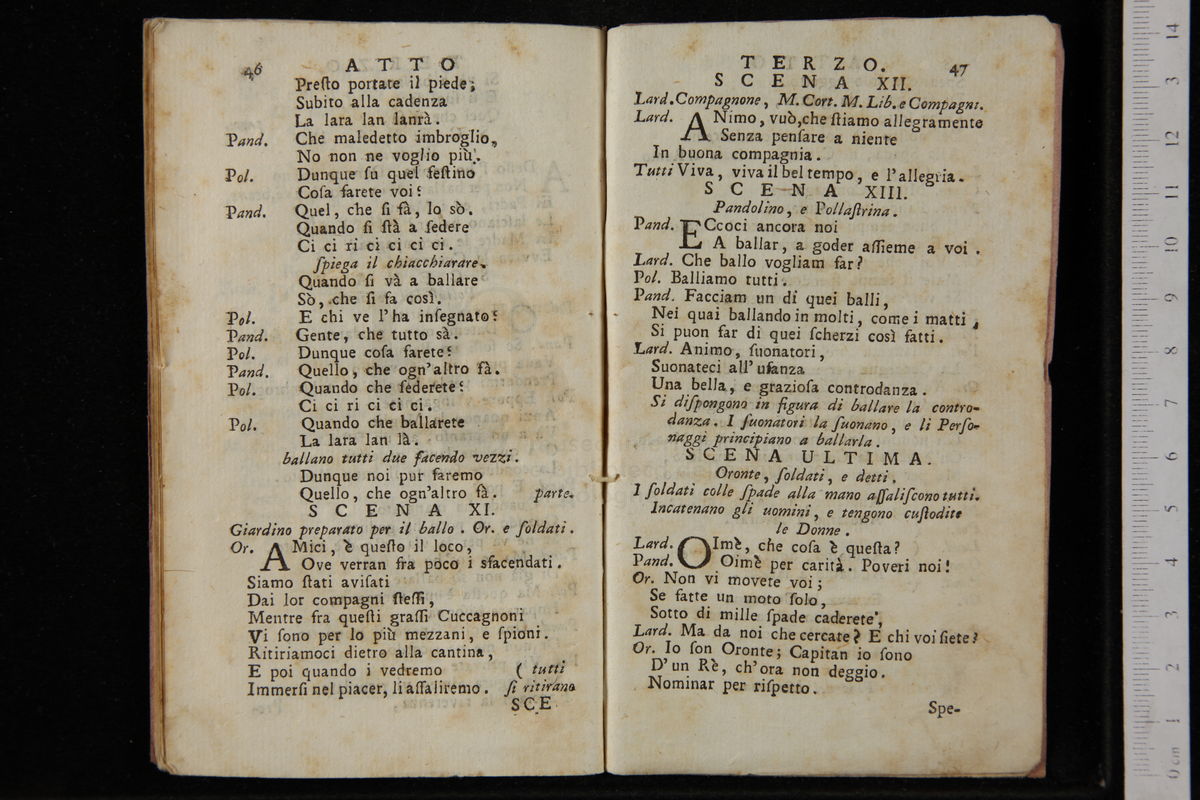 46 A T T O
Preſto portate il piede;
Subito alla cadenza
La lara lan lanrà.
Pand. Che maledetto imbroglio,
No non ne voglio più.
Pol. Dunque ſu quel feſtino
Coſa farete voi?
Pand. Quel, che ſi fà, lo sò.
Quando ſi ſtà a ſedere
Ci ci ri ci ci ci ci.
ſpiega il chiacchiarare.
Quando ſi và a ballare
Sò, che ſi fa così.
Pol. E chi ve l'ha inſegnato?
Pand. Gente, che tutto sà.
Pol. Dunque coſa farete?
Pand. Quello, che ogn'altro fà.
Pol. Quando che ſederete?
Ci ci ri ci ci ci.
Pol. Quando che ballarete
La lara lan là.
ballano tutti due facendo vezzi.
Dunque noi pur faremo
Quello, che ogn'altro fà. parte.
S C E N A XI.
Giardino preparato per il ballo. Or. e ſoldati.
Or. AMici, è queſto il loco,
Ove verran fra poco i sfacendati.
Siamo ſtati aviſati
Dai lor compagni ſteſſi,
Mentre fra queſti graſſi Cuccagnoni
Vi ſono per lo più mezzani, e ſpioni.
Ritiriamoci dietro alla cantina,
E poi quando i vedremo ( tutti
Immerſi nel piacer, li aſſaliremo. ſi ritirano
SCE-
T E R Z O. 47
S C E N A XII.
Lard. Compagnone, M. Cort. M. Lib. e Compagni.
Lard. ANimo, vuò, che ſtiamo allegramente
Senza penſare a niente
In buona compagnia.
Tutti Viva, viva il bel tempo, e l'allegria.
S C E N A XIII.
Pandolino, e Pollaſtrina.
Pand. ECcoci ancora noi
A ballar, a goder aſſieme a voi.
Lard. Che ballo vogliam far?
Pol. Balliamo tutti.
Pand. Facciam un di quei balli,
Nei quai ballando in molti, come i matti,
Si puon far di quei ſcherzi così fatti.
Lard. Animo, ſuonatori,
Suonateci all' uſanza
Una bella, e grazioſa controdanza.
Si diſpongono in figura di ballare la contro-
danza. I ſuonatori la ſuonano, e li Perſo-
naggi principiano a ballarla.
S C E N A U L T I M A.
Oronte, ſoldati, e detti.
I ſoldati colle ſpade alla mano aſſaliſcono tutti.
Incatenano gli uomini, e tengono cuſtodite
le Donne.
Lard. OImè, che coſa è queſta?
Pand. Oimè per carità. Poveri noi!
Or. Non vi movete voi;
Se fatte un moto ſolo,
Sotto di mille ſpade caderete,
Lard. Ma da noi che cercate? E chi voi ſiete?
Or. Io ſon Oronte; Capitan io ſono
D'un Rè, ch'ora non deggio.
Nominar per riſpetto.
Spe-
0 cm 1 2 3 4 5 6 7 8 9 10 11 12 13 14